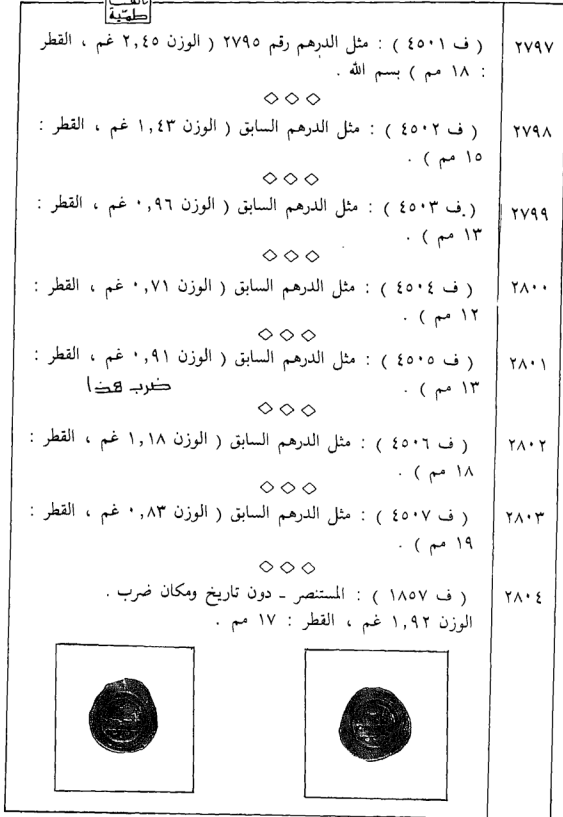 ٢٧٩٧ ( ف ٤٥٠١ ) : مثل الدرهم رقم ٢٧٩٥ ( الوزن ٢,٤٥ غم ، القطر
: ١٨ مم ) بسم الله .
٢٧٩٨ ( ف ٤٥٠٢ ) : مثل الدرهم السابق ( الوزن ١,٤٣ غم ، القطر :
١٥ مم ) .
٢٧٩٩ ( ف ٤٥٠٣ ) : مثل الدرهم السابق ( الوزن ٠,٩٦ غم ، القطر :
١٣ مم ) .
٢٨٠٠ ( ف ٤٥٠٤ ) : مثل الدرهم السابق ( الوزن ٠,٧١ غم ، القطر :
١٢ مم ) .
٢٨٠١ ( ف ٤٥٠٥ ) : مثل الدرهم السابق ( الوزن ٠,٩١ غم ، القطر :
١٣ مم ) . ضرب هذا
٢٨٠٢ ( ف ٤٥٠٦ ) : مثل الدرهم السابق ( الوزن ١,١٨ غم ، القطر :
١٨ مم ) .
٢٨٠٣ ( ف ٤٥٠٧ ) : مثل الدرهم السابق ( الوزن ٠,٨٣ غم ، القطر :
١٩ مم ) .
٢٨٠٤ ( ف ١٨٥٧ ) : المستنصر ـ دون تاريخ ومكان ضرب .
الوزن ١,٩٢ غم ، القطر : ١٧ مم .